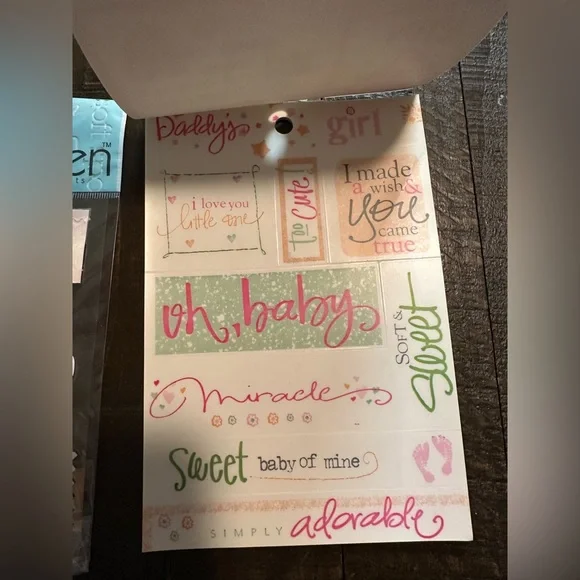 Daddy's girl
i love you
little one
too cute
I made
a wish &
you
came
true
oh, baby
SOFT &
Sweet
miracle
sweet baby of mine
SIMPLY adorable
en™
soft